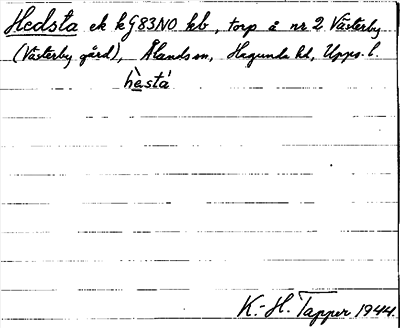 Hedsta ek kG83NO kb, torp å nr 2 Västerby
(Västerby gård), Ålands sn, Hagunda hd, Upps. l.
hèstá
K.-H. Tapper 1944.